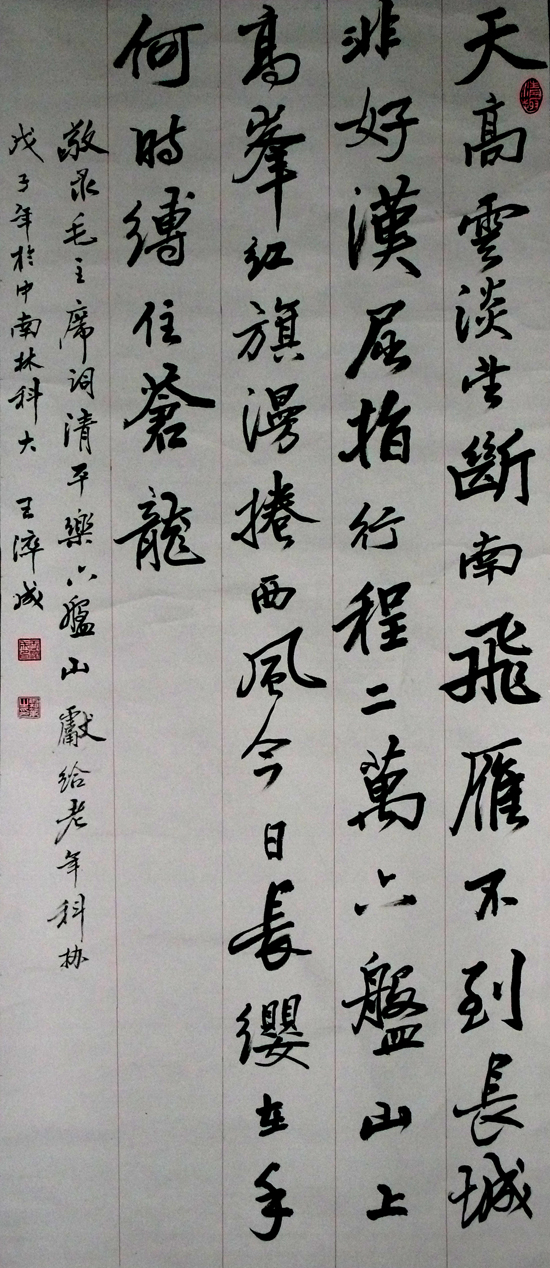 天高雲淡望斷南飛雁不到長城
非好漢屈指行程二萬六盤山上
高峯紅旗漫捲西風今日長纓在手
何時縛住蒼龍
敬录毛主席词清平樂六盤山 獻给老年科协
戊子年於中南林科大 王淬成